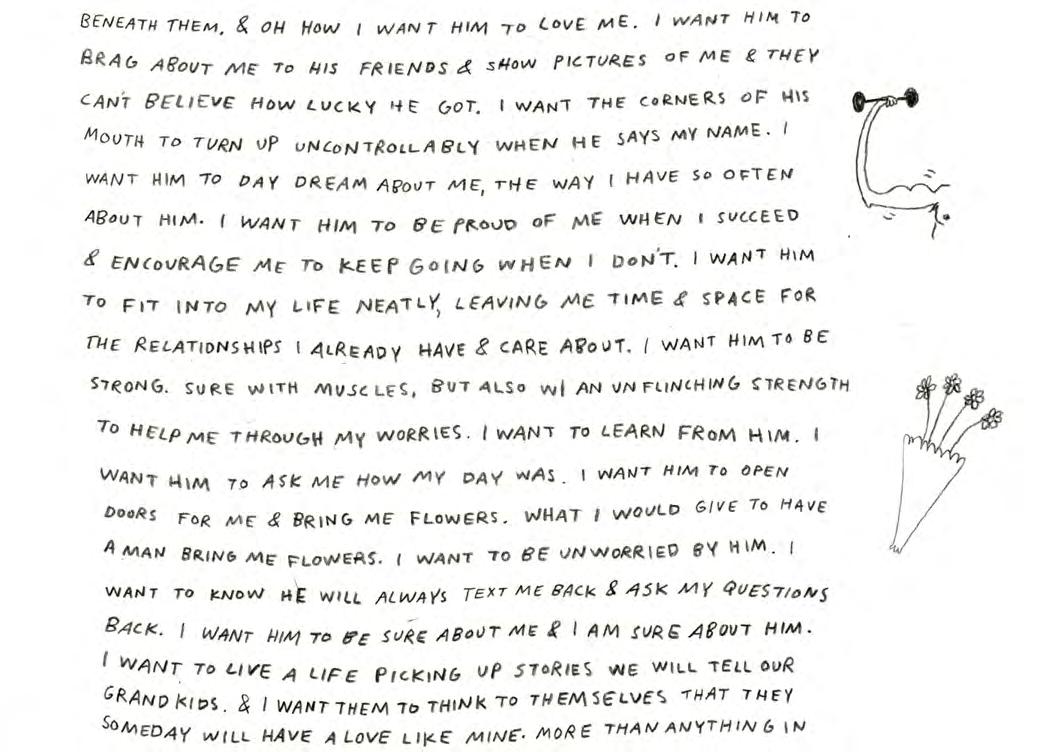 BENEATH THEM, & OH HOW I WANT HIM TO LOVE ME. I WANT HIM TO
BRAG ABOUT ME TO HIS FRIENDS & SHOW PICTURES OF ME & THEY
CAN'T BELIEVE HOW LUCKY HE GOT. I WANT THE CORNERS OF HIS
MOUTH TO TURN UP UNCONTROLLABLY WHEN HE SAYS MY NAME. I
WANT HIM TO DAY DREAM ABOUT ME, THE WAY I HAVE SO OFTEN
ABOUT HIM. I WANT HIM TO BE PROUD OF ME WHEN I SUCCEED
& ENCOURAGE ME TO KEEP GOING WHEN I DON'T. I WANT HIM
TO FIT INTO MY LIFE NEATLY, LEAVING ME TIME & SPACE FOR
THE RELATIONSHIPS I ALREADY HAVE & CARE ABOUT. I WANT HIM TO BE
STRONG. SURE WITH MUSCLES, BUT ALSO W/ AN UNFLINCHING STRENGTH
TO HELP ME THROUGH MY WORRIES. I WANT TO LEARN FROM HIM. I
WANT HIM TO ASK ME HOW MY DAY WAS. I WANT HIM TO OPEN
DOORS FOR ME & BRING ME FLOWERS. WHAT I WOULD GIVE TO HAVE
A MAN BRING ME FLOWERS. I WANT TO BE UNWORRIED BY HIM. I
WANT TO KNOW HE WILL ALWAYS TEXT ME BACK & ASK MY QUESTIONS
BACK. I WANT HIM TO BE SURE ABOUT ME & I AM SURE ABOUT HIM.
I WANT TO LIVE A LIFE PICKING UP STORIES WE WILL TELL OUR
GRANDKIDS. & I WANT THEM TO THINK TO THEMSELVES THAT THEY
SOMEDAY WILL HAVE A LOVE LIKE MINE. MORE THAN ANYTHING IN